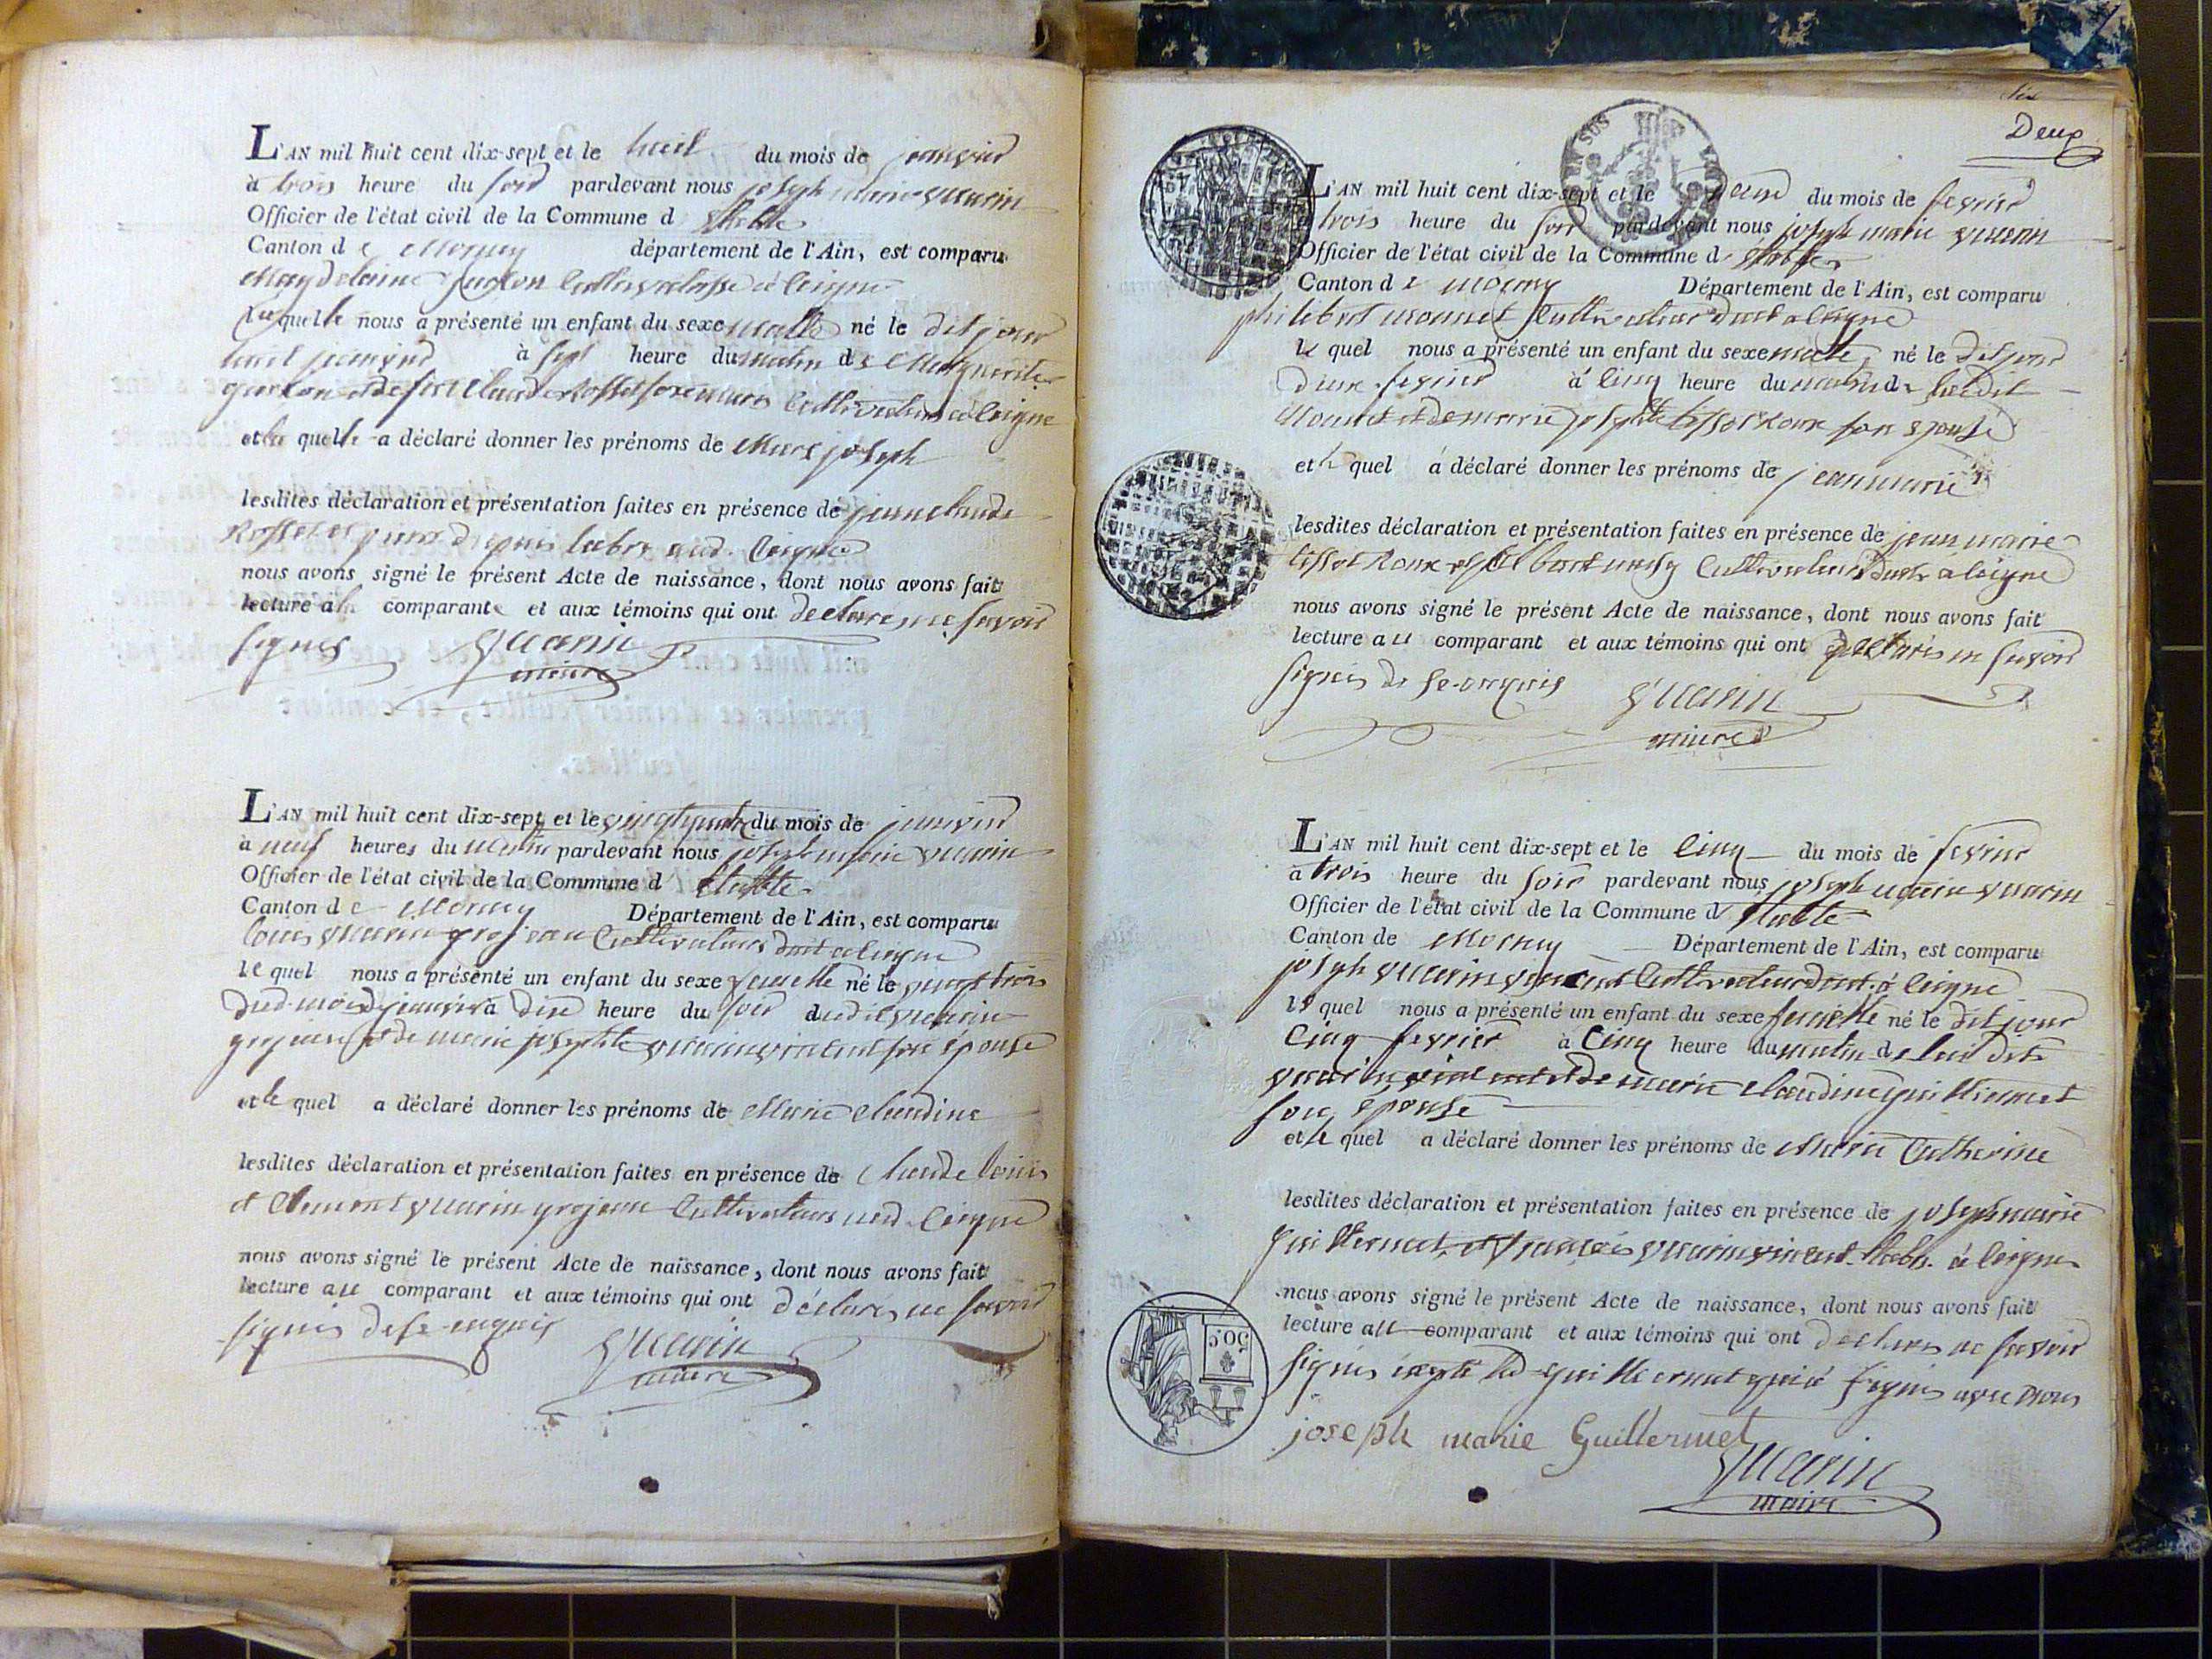 L'AN mil huit cent dix-sept et le huit du mois de janvier
à trois heure du soir pardevant nous joseph marie Marin
Officier de l'état civil de la Commune d
Canton de Mornay département de l'Ain, est comparu
Magdelaine cultivatrice à Ceigne
laquelle nous a présenté un enfant du sexe malle né le dit jour
huit janvier à sept heure du matin de Marguerite
et de feu Claude Rosset son mari cultivateur à Ceigne
et la quelle a déclaré donner les prénoms de Marc joseph
lesdites déclaration et présentation faites en présence de jean claude
Rosset
nous avons signé le présent Acte de naissance, dont nous avons fait
lecture a la comparante et aux témoins qui ont declarés ne savoir
signés
maire
L'AN mil huit cent dix-sept et le du mois de janvier
à neuf heures du matin pardevant nous joseph marie
Officier de l'état civil de la Commune d
Canton de Mornay Département de l'Ain, est comparu
louis grosjean Cultivateur dmt a Ceigne
le quel nous a présenté un enfant du sexe femelle né le vingt trois
dud. mois de janvier à dix heure du soir dudit
grosjean et de marie josephte vincent son épouse
et le quel a déclaré donner les prénoms de Marie Claudine
lesdites déclaration et présentation faites en présence de Claude louis
et Clement grosjean Cultivateurs aud. Ceigne
nous avons signé le présent Acte de naissance, dont nous avons fait
lecture au comparant et aux témoins qui ont déclarés ne savoir
signés de ce enquis
maire
Deux
L'AN mil huit cent dix-sept et le deux du mois de fevrier
à trois heure du soir pardevant nous joseph marie
Officier de l'état civil de la Commune d
Canton de Mornay Département de l'Ain, est comparu
philibert monnet Cultivateur dmt a Ceigne
le quel nous a présenté un enfant du sexe malle né le dit jour
deux fevrier à cinq heure du matin de luidit
Monnet et de marie josephte tissot Roux son epouse
et le quel a déclaré donner les prénoms de jean marie
lesdites déclaration et présentation faites en présence de jean marie
tissot Roux et Cultivateurs dmts à Ceigne
nous avons signé le présent Acte de naissance, dont nous avons fait
lecture au comparant et aux témoins qui ont declarés ne savoir
signés de ce enquis
maire
L'AN mil huit cent dix-sept et le Cinq du mois de fevrier
à trois heure du soir pardevant nous joseph marie
Officier de l'état civil de la Commune d
Canton de Mornay Département de l'Ain, est comparu
joseph vincent Cultivateur dmt. à Ceigne
le quel nous a présenté un enfant du sexe femelle né le dit jour
Cinq fevrier à Cinq heure du matin de lui dit
vincent et de marie claudine guillermet
son epouse
et le quel a déclaré donner les prénoms de Marie Catherine
lesdites déclaration et présentation faites en présence de joseph marie
guillermet, et françois vincent à Ceigne
nous avons signé le présent Acte de naissance, dont nous avons fait
lecture au comparant et aux témoins qui ont declarés ne savoir
signés excepté led. guillermet qui a signés avec nous
50 C
joseph marie Guillermet
maire